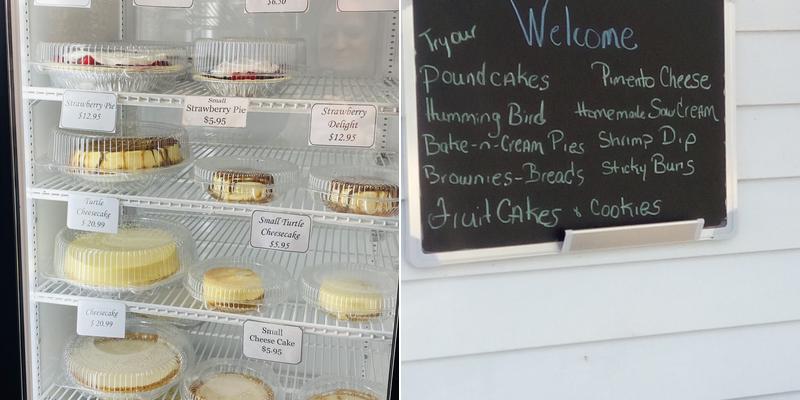 $6.50
Strawberry Pie
$12.95
Small
Strawberry Pie
$5.95
Strawberry
Delight
$12.95
Turtle
Cheesecake
$20.99
Small Turtle
Cheesecake
$5.95
Cheesecake
$20.99
Small
Cheese Cake
$5.95
Welcome
Try our
Poundcakes
Pimento Cheese
Humming Bird
Homemade Sow Cream
Bake-n-Cream Pies
Shrimp Dip
Brownies-Breads
Sticky Buns
Fruit Cakes & Cookies